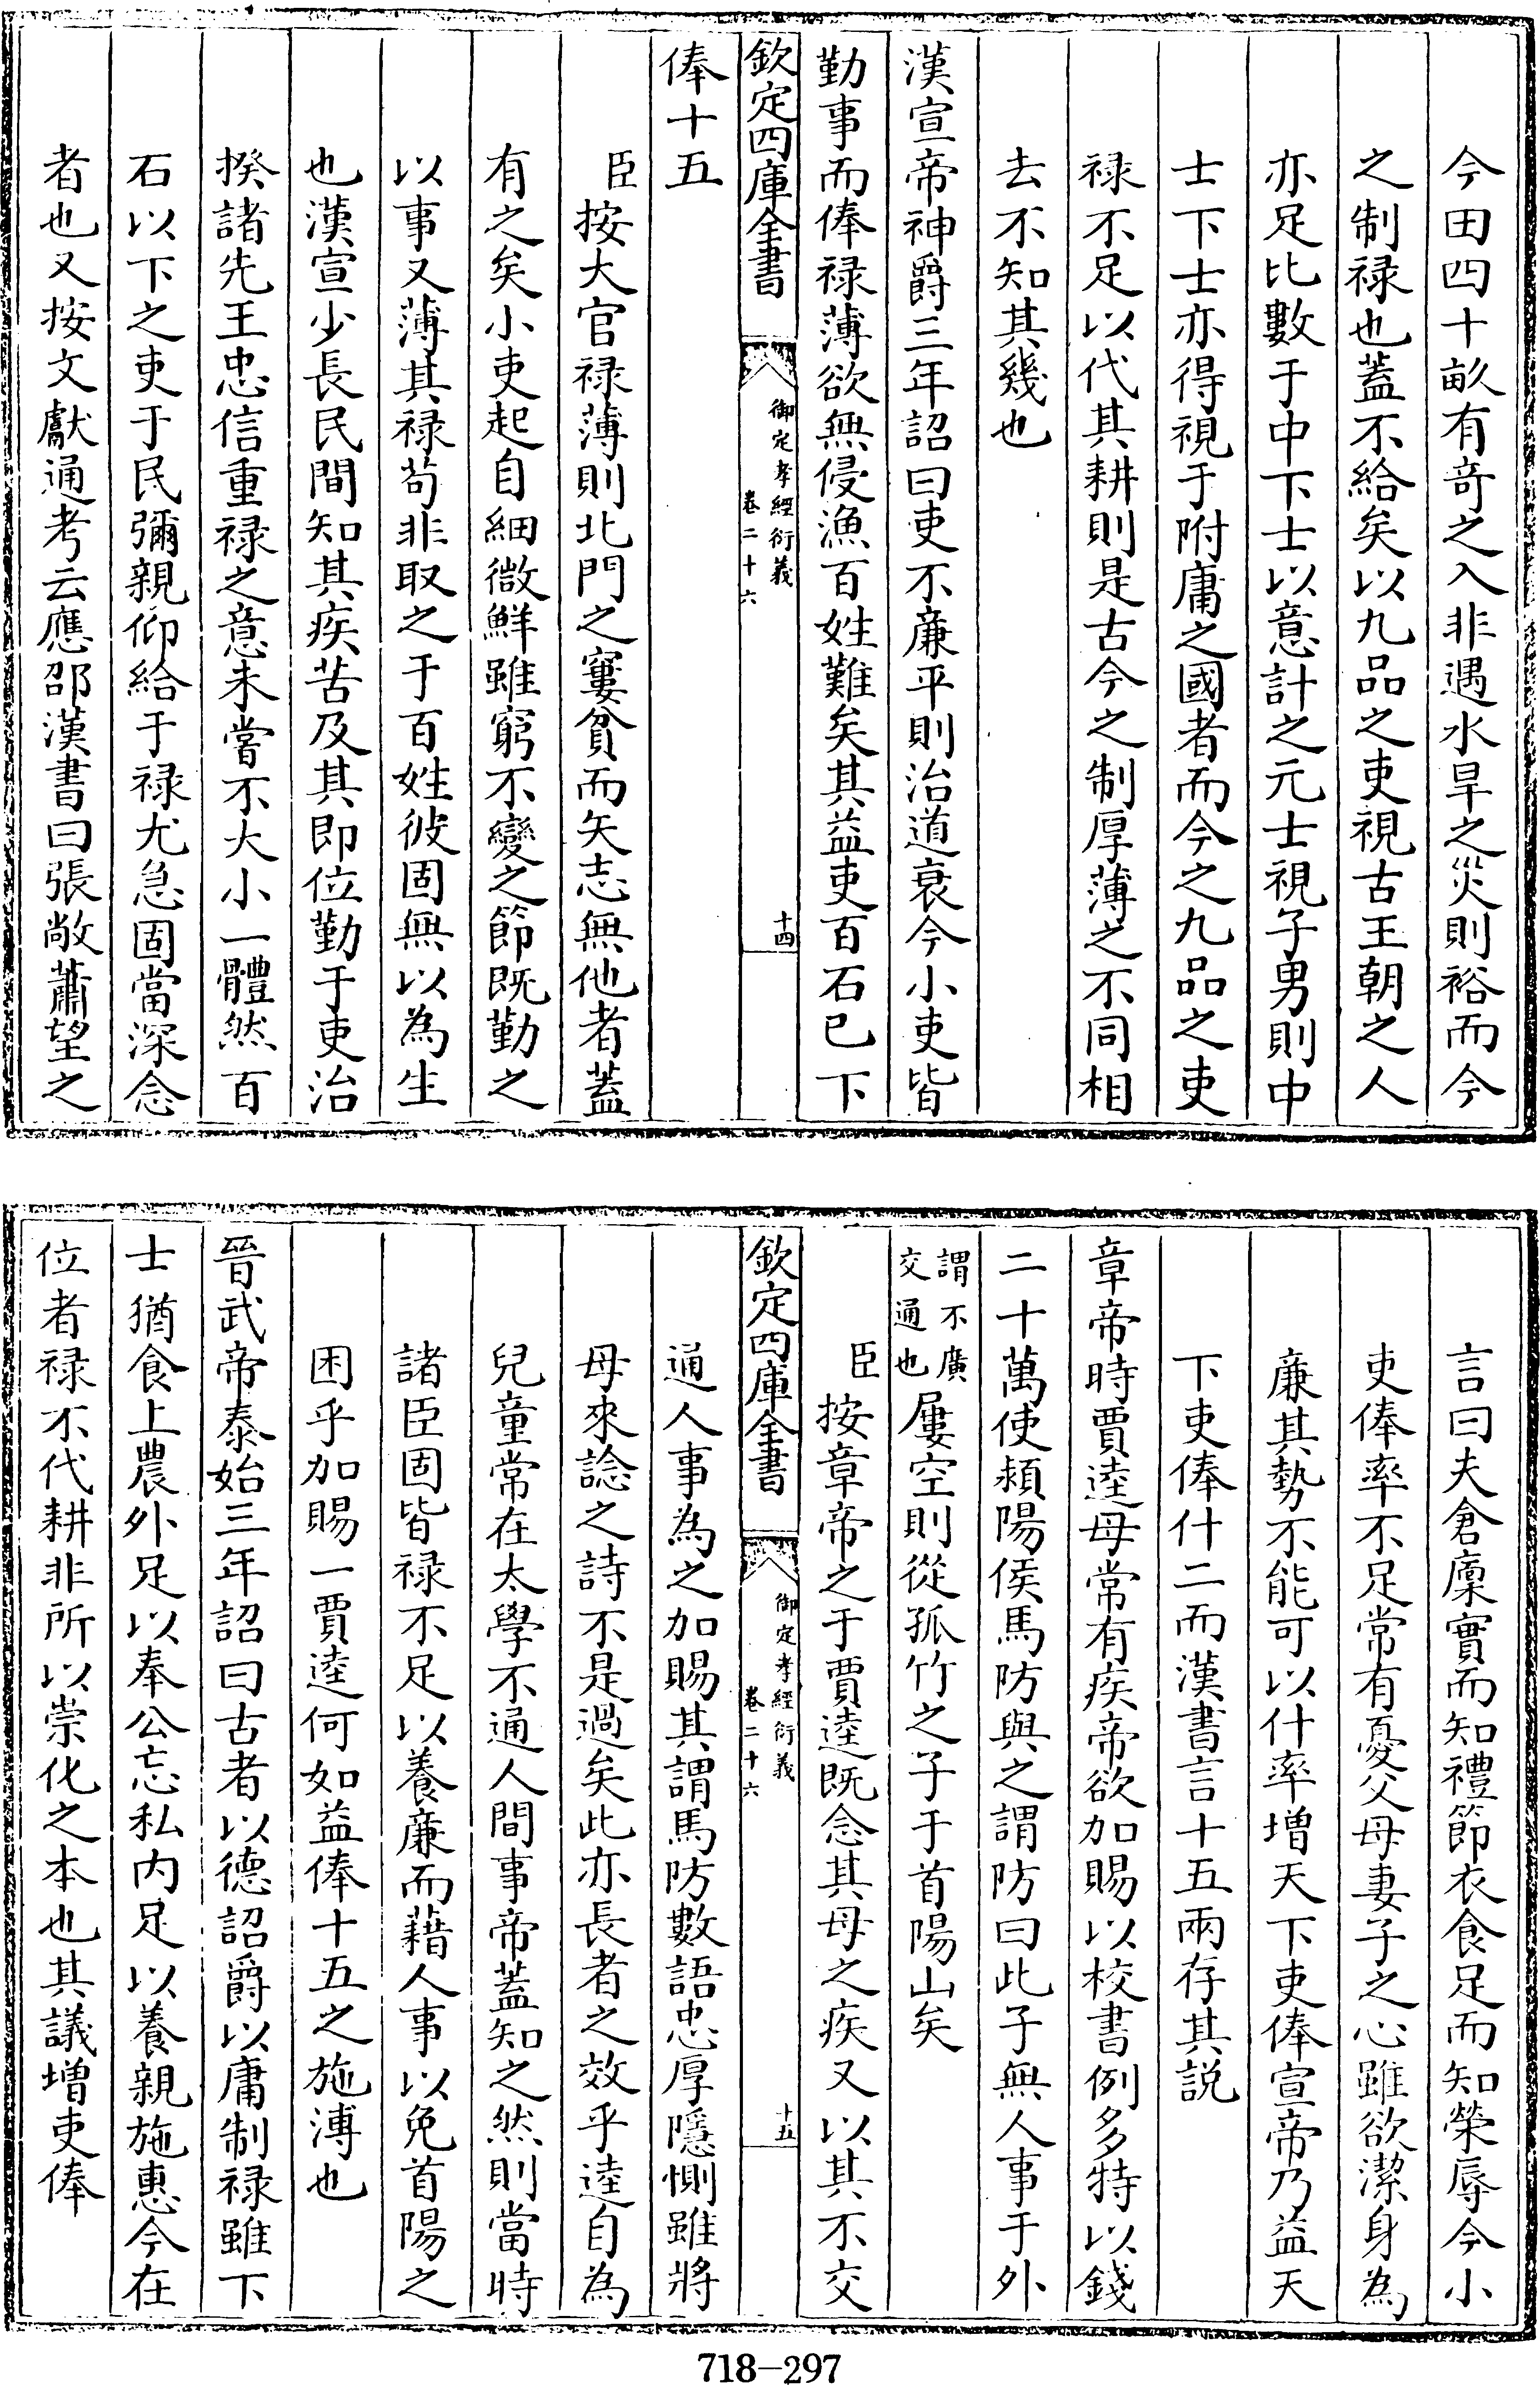 今田四十畝有竒之入非遇水旱之災則裕而今
之制禄也蓋不給矣以九品之吏視古王朝之人
亦足比數于中下士以意計之元士視子男則中
士下士亦得視于附庸之國者而今之九品之吏
禄不足以代其耕則是古今之制厚薄之不同相
去不知其幾也
漢宣帝神爵三年詔曰吏不廉平則治道衰今小吏皆
勤事而俸禄薄欲無侵漁百姓難矣其益吏百石已下
欽定四庫全書
御定孝經衍義
卷二十六
十四
俸十五
臣按大官禄薄則北門之窶貧而矢志無他者蓋
有之矣小吏起自細微鮮雖窮不變之節既勤之
以事又薄其禄茍非取之于百姓彼固無以為生
也漢宣少長民間知其疾苦及其即位勤于吏治
揆諸先王忠信重禄之意未嘗不大小一體然百
石以下之吏于民彌親仰給于禄尤急固當深念
者也又按文獻通考云應邵漢書曰張敞蕭望之
言曰夫倉廩實而知禮節衣食足而知榮辱今小
吏俸率不足常有憂父母妻子之心雖欲潔身為
廉其勢不能可以什率増天下吏俸宣帝乃益天
下吏俸什二而漢書言十五兩存其説
章帝時賈逵母常有疾帝欲加賜以校書例多特以錢
二十萬使潁陽侯馬防與之謂防曰此子無人事于外
謂不廣
交通也
屢空則從孤竹之子于首陽山矣
臣按章帝之于賈逵既念其母之疾又以其不交
欽定四庫全書
御定孝經衍義
卷二十六
十五
通人事為之加賜其謂馬防數語忠厚隱惻雖將
母來諗之詩不是過矣此亦長者之效乎逵自為
兒童常在太學不通人間事帝蓋知之然則當時
諸臣固皆禄不足以養廉而藉人事以免首陽之
困乎加賜一賈逵何如益俸十五之施溥也
晉武帝泰始三年詔曰古者以德詔爵以庸制禄雖下
士猶食上農外足以奉公忘私内足以養親施惠今在
位者禄不代耕非所以崇化之本也其議増吏俸
718-297